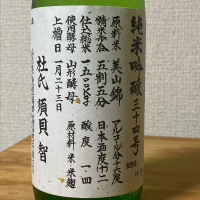 純米吟醸三十四号
原料米 美山錦 アルコール分十六度
精米歩合 五割五分 日本酒度 十二
仕込総米 一五〇〇kg 酸度 一・四
使用酵母 山形酵母 原材料 米・米麹
上槽日 一月二十三日
杜氏 須貝 智